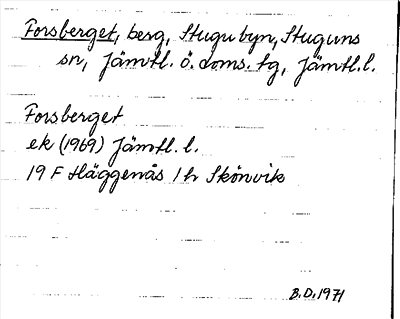 Forsberget, berg, Stugubyn, Stuguns
sn, Jämtl. ö. doms. tg, Jämtl. l.
Forsberget
ek (1969) Jämtl. l.
19 F Häggenås 1 h Skönvik
B.D. 1971